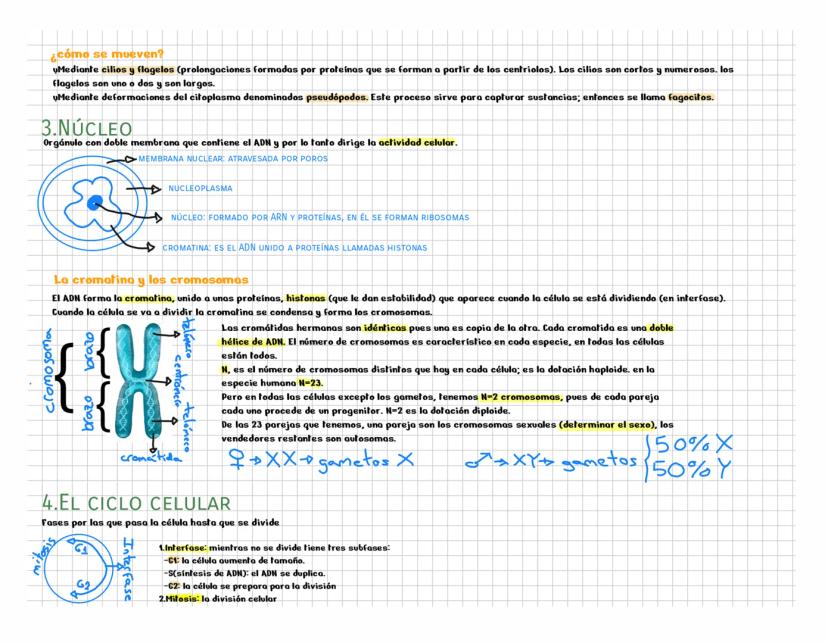 ¿cómo se mueven?
Mediante cilios y flagelos (prolongaciones formadas por proteínas que se forman a partir de los centriolos). Los cilios son cortos y numerosos. los
flagelos son uno o dos y son largos.
Mediante deformaciones del citoplasma denominados pseudópodos. Este proceso sirve para capturar sustancias; entonces se llama fagocitos.
3.NÚCLEO
Orgánulo con doble membrana que contiene el ADN y por lo tanto dirige la actividad celular.
MEMBRANA NUCLEAR: ATRAVESADA POR POROS
NUCLEOPLASMA
NÚCLEO: FORMADO POR ARN Y PROTEÍNAS, EN ÉL SE FORMAN RIBOSOMAS
CROMATINA: ES EL ADN UNIDO A PROTEÍNAS LLAMADAS HISTONAS
La cromatina y los cromosomas
El ADN forma la cromatina, unido a unas proteínas, histonas (que le dan estabilidad) que aparece cuando la célula se está dividiendo (en interfase).
Cuando la célula se va a dividir la cromatina se condensa y forma los cromosomas.
cromosoma
brazo
brazo
telómero
centrómero
telómero
cromátida
Las cromátidas hermanas son idénticas pues una es copia de la otra. Cada cromatida es una doble
hélice de ADN. El número de cromosomas es característico en cada especie, en todas las células
están todos.
N, es el número de cromosomas distintos que hay en cada célula; es la dotación haploide. en la
especie humana N=23.
Pero en todas las células excepto los gametos, tenemos N=2 cromosomas, pues de cada pareja
cada uno procede de un progenitor. N=2 es la dotación diploide.
De las 23 parejas que tenemos, una pareja son los cromosomas sexuales (determinar el sexo), los
vendedores restantes son autosomas.
♀→XX→gametos X
♂→XY→gametos
50% X
50% Y
4.EL CICLO CELULAR
Fases por las que pasa la célula hasta que se divide
mitosis
G1
G2
Interfase
1.Interfase: mientras no se divide tiene tres subfases:
-G1: la célula aumenta de tamaño.
-S(síntesis de ADN): el ADN se duplica.
-G2: la célula se prepara para la división
2.Mitosis: la división celular